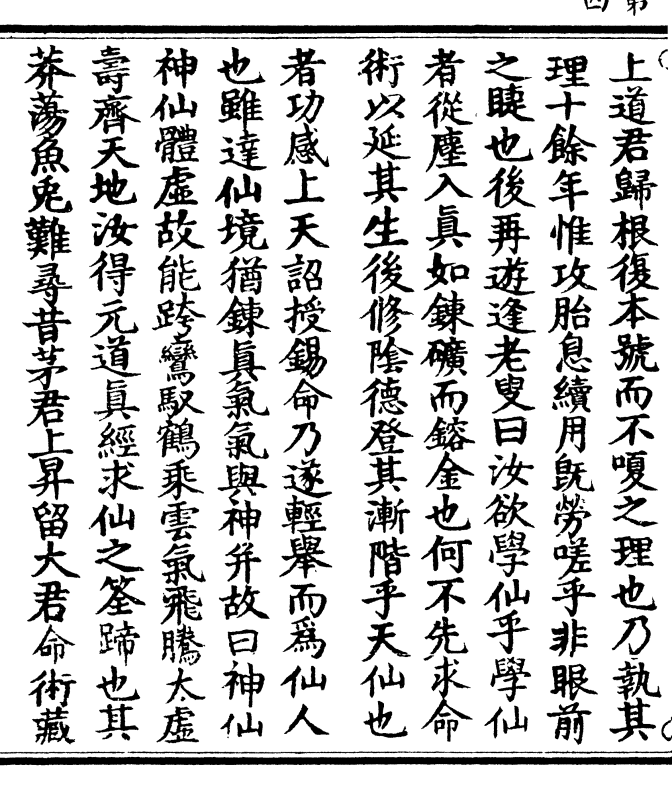 第四
上道君歸根復本號而不嗄之理也乃執其
理十餘年惟攻胎息續用旣勞嗟乎非眼前
之睫也後再遊逢老叟曰汝欲學仙乎學仙
者從塵入眞如鍊礦而鎔金也何不先求命
術以延其生後修陰德登其漸階乎天仙也
者功感上天詔授錫命乃遂輕舉而爲仙人
也雖達仙境猶鍊眞氣氣與神并故曰神仙
神仙體虛故能跨鸞馭鶴乘雲氣飛騰太虛
壽齊天地汝得元道眞經求仙之筌蹄也其
莽蕩魚兎難尋昔茅君上昇留大君命術藏